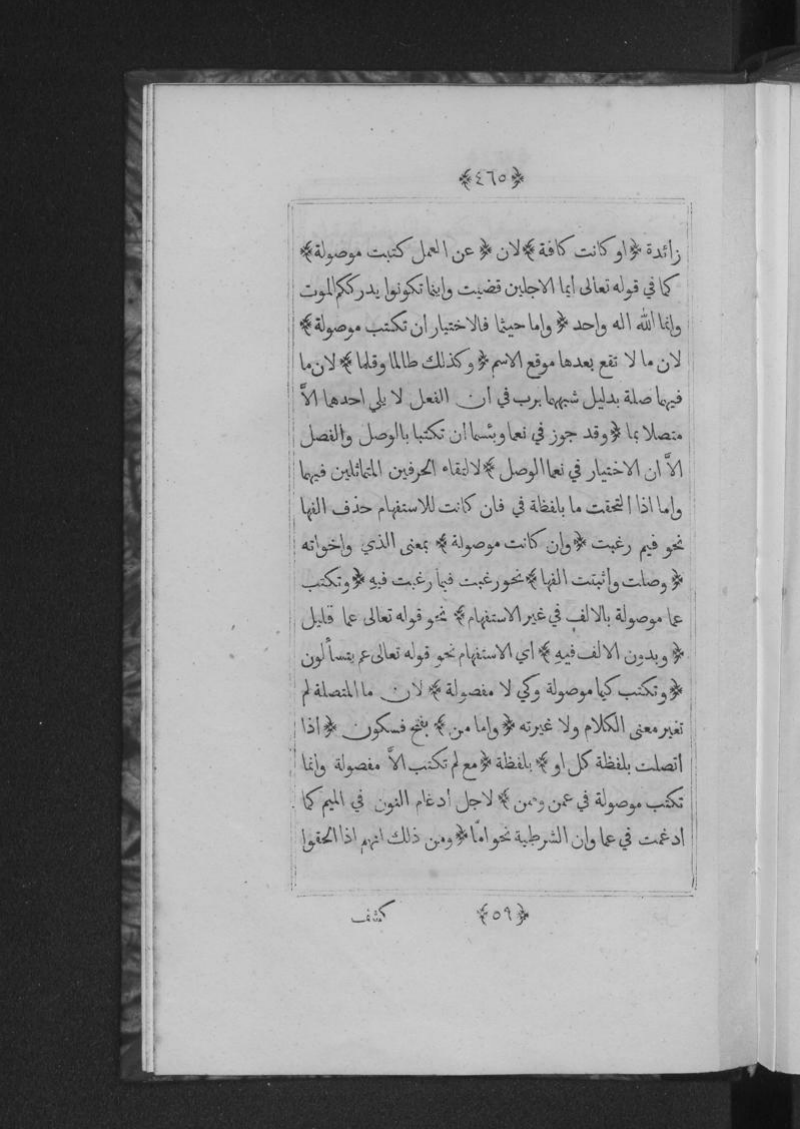 ﴿٤٦٥﴾
زائدة ﴿ او كانت كافة ﴾ لان ﴿ عن العمل كتبت موصولة ﴾
كما في قوله تعالى ايما الاجلين قضيت واينما تكونوا يدرككم الموت
وانما الله اله واحد ﴿ واما حيثما فالاختيار ان تكتب موصولة ﴾
لان ما لا تقع بعدها موقع الاسم ﴿ وكذلك طالما وقلما ﴾ لان ما
فيهما صلة بدليل شبههما برب في أن الفعل لا يلي احدهما الاَّ
متصلا بما ﴿ وقد جوز في نعما وبئسما ان تكتبا بالوصل والفصل
الاَّ ان الاختيار في نعما الوصل ﴾ لالتقاء الحرفين المتماثلين فيهما
واما اذا التحقت ما بلفظة في فان كانت للاستفهام حذف الفها
نحو فيم رغبت ﴿ وان كانت موصولة ﴾ بمعنى الذي واخواته
﴿ وصلت واثبتت الفها ﴾ نحو رغبت فيما رغبت فيهِ ﴿ وتكتب
عما موصولة بالالف في غير الاستفهام ﴾ نحو قوله تعالى عما قليل
﴿ وبدون الالف فيهِ ﴾ أي الاستفهام نحو قوله تعالى عم يتسألون
﴿ وتكتب كيما موصولة وكي لا مفصولة ﴾ لان ما المتصلة لم
تغير معنى الكلام ولا غيرته ﴿ واما من ﴾ بفتح فسكون ﴿ اذا
اتصلت بلفظة كل او ﴾ بلفظة ﴿ مع لم تكتب الاَّ مفصولة وانما
تكتب موصولة في عمن وممن ﴾ لاجل أدغام النون في الميم كما
ادغمت في عما وان الشرطية نحو امَّا ﴿ ومن ذلك انهم اذا الحقوا
﴿٥٩﴾ كشف